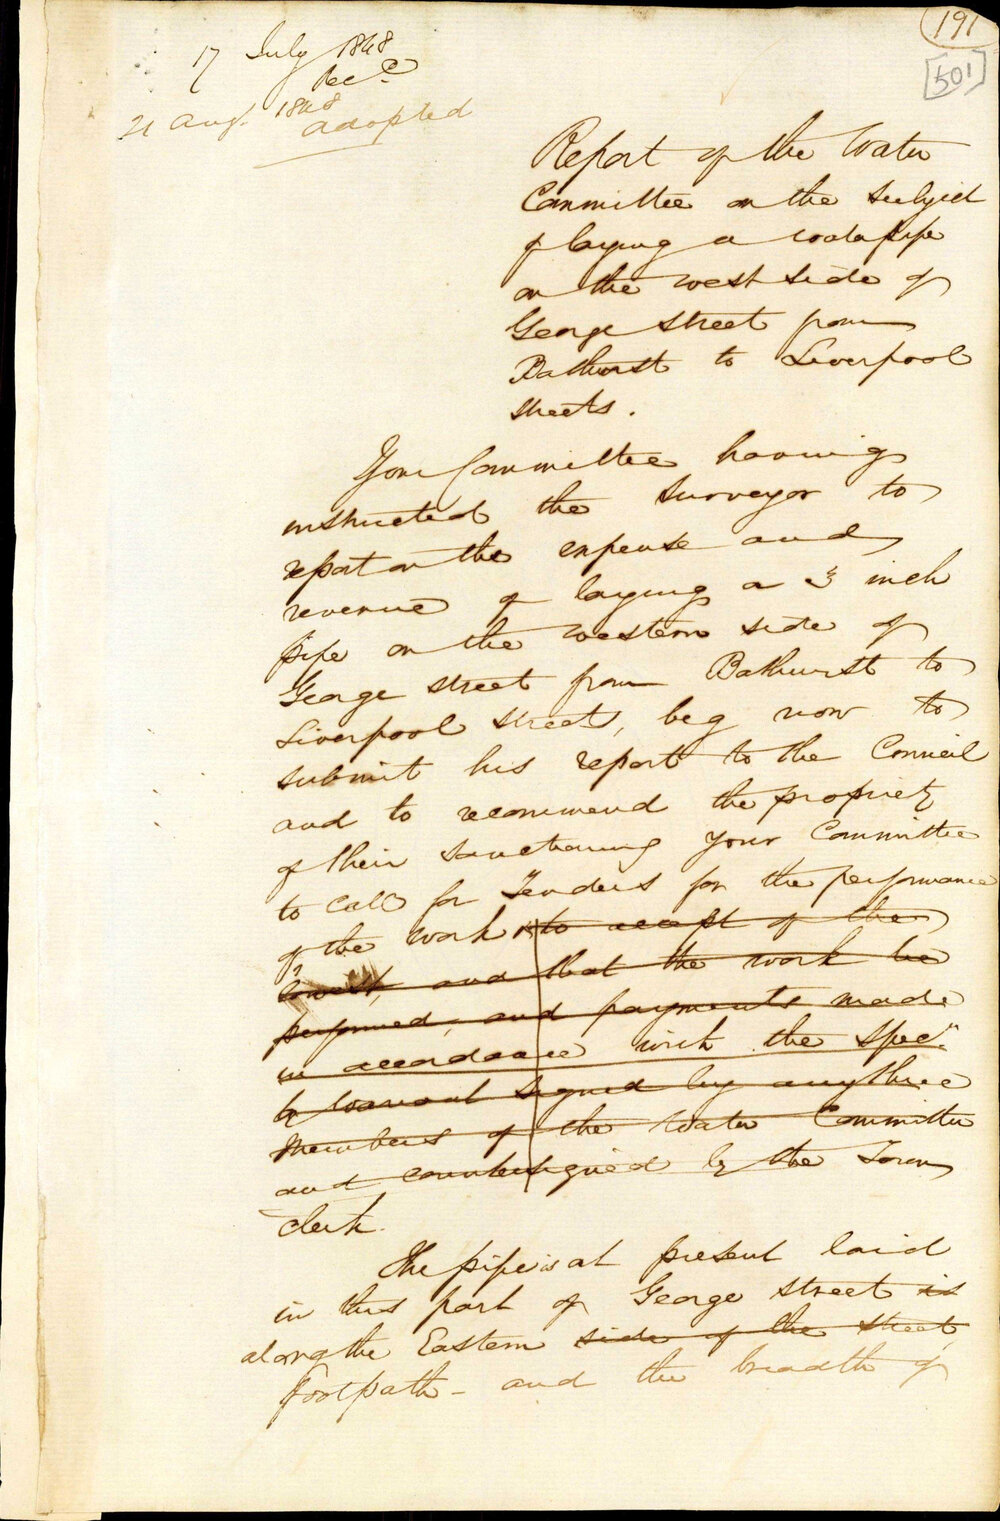 191
[501]
17 July 1848
Recd.
21 Aug. 1848
adopted
Report of the Water
Committee on the subject
of laying a waterpipe
on the west side of
George street from
Bathurst to Liverpool
streets.
Your Committee having
instructed the Surveyor to
report on the expense and
revenue of laying a 3 inch
pipe on the western side of
George street from Bathurst to
Liverpool streets, beg now to
submit his report to the Council
and to recommend the propriety
of their sanctioning your Committee
to call for Tenders for the performance
of the work to accept of the
lowest, and that the work be
performed, and payments made
in accordance with the specn.
by warrant signed by any three
members of the Water Committee
and countersigned by the Town
clerk.
The pipe is at present laid
in this part of George street is
along the Eastern side of the street
footpath - and the breadth of